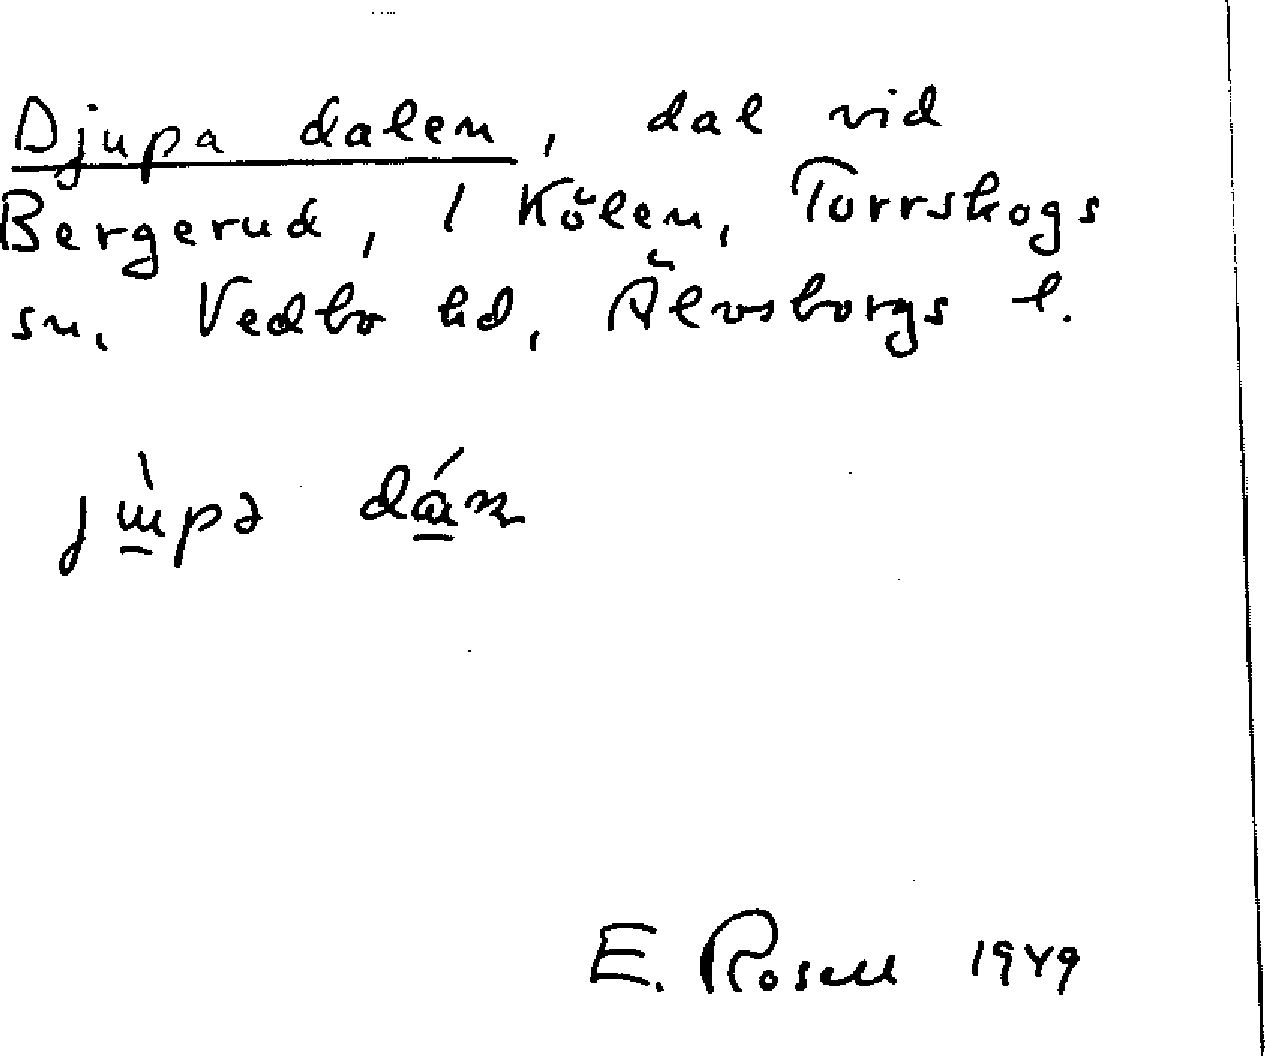 Djupa dalen, dal vid
Bergerud, 1 Kölen, Torrskogs
sn, Vedbo hd, Älvsborgs l.
E. Rosell 1949